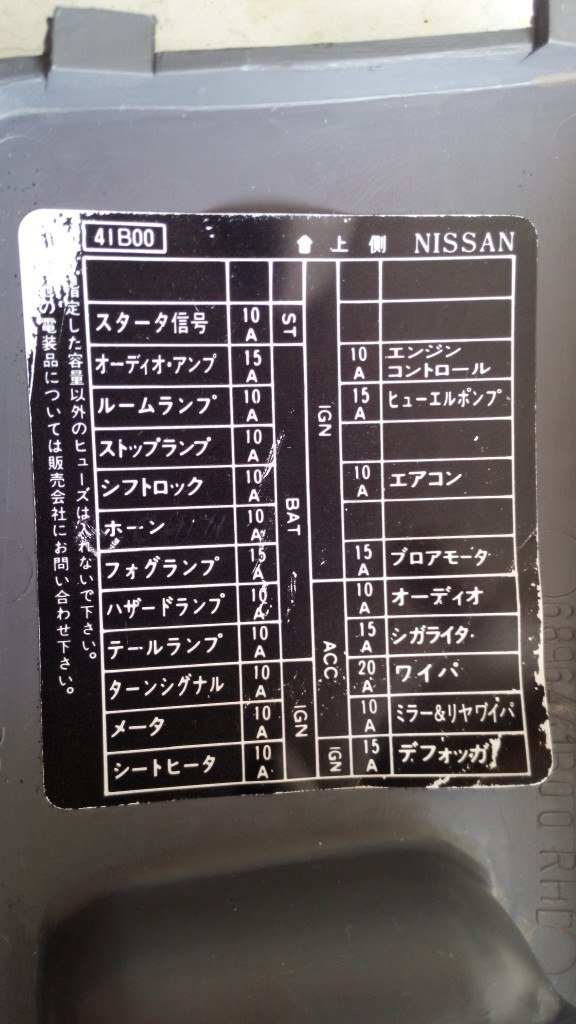 41B00 上側 NISSAN
スタータ信号 10A ST
オーディオ・アンプ 15A BAT
ルームランプ 10A
ストップランプ 10A
シフトロック 10A
ホーン 10A
フォグランプ 15A
ハザードランプ 10A
テールランプ 10A
ターンシグナル 10A IGN
メータ 10A
シートヒータ 10A
IGN 10A エンジンコントロール
15A ヒューエルポンプ
10A エアコン
15A ブロアモータ
ACC 10A オーディオ
15A シガライタ
20A ワイパ
10A ミラー&リヤワイパ
IGN 15A デフォッガ
指定した容量以外のヒューズは入れないで下さい。
の電装品については販売会社にお問い合わせ下さい。
RHD